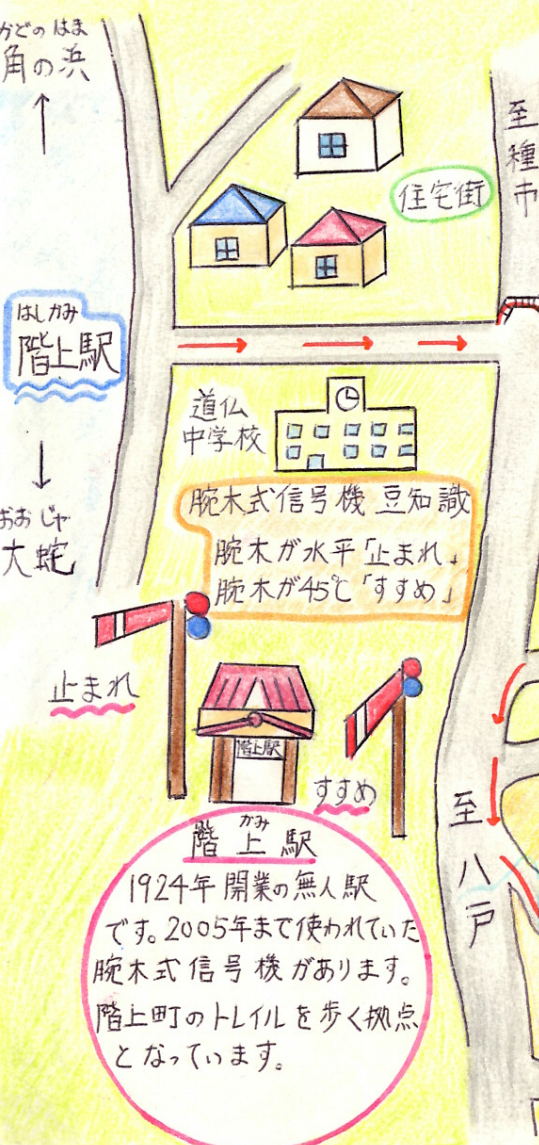 かどのはま
角の浜
至種市
住宅街
はしかみ
階上駅
道仏
中学校
おおじゃ
大蛇
腕木式信号機 豆知識
腕木が水平「止まれ」
腕木が45℃「すすめ」
止まれ
階上駅
すすめ
至八戸
かみ
階上駅
1924年開業の無人駅
です。2005年まで使われていた
腕木式信号機があります。
階上町のトレイルを歩く拠点
となっています。